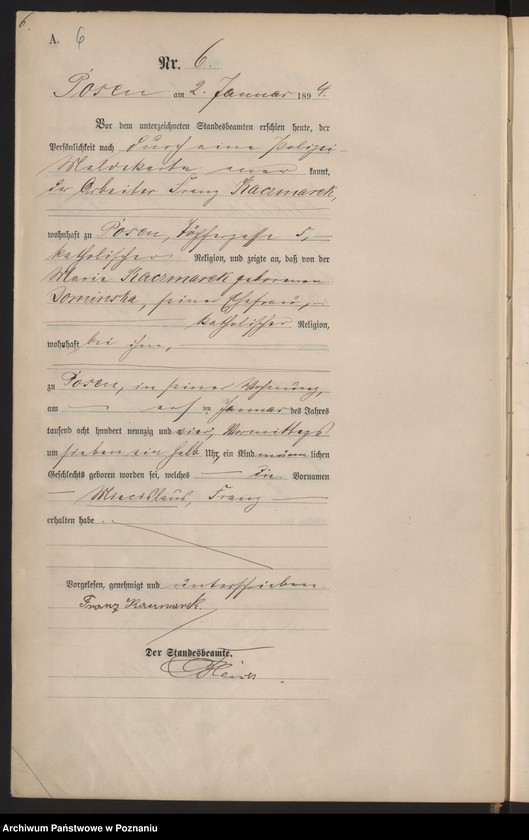 6.
A. 6
Nr. 6.
Posen am 2. Januar 1894.
Vor dem unterzeichneten Standesbeamten erschien heute, der
Persönlichkeit nach durch eine Polizei-
Meldekarte aner kannt,
der Arbeiter Franz Kaczmarek,
wohnhaft zu Posen, 5,
katholischer Religion, und zeigte an, daß von der
Marie Kaczmarek geborenen
Dominska, seiner Ehefrau,
katholischer Religion,
wohnhaft bei ihm,
zu Posen, in seiner Wohnung,
am ten Januar des Jahres
tausend acht hundert neunzig und vier, Vormittags
um sieben ein halb Uhr, ein Kind männlichen
Geschlechts geboren worden sei, welches die Vornamen
Miecislaus, Franz
erhalten habe.
Vorgelesen, genehmigt und unterschrieben.
Franz Kaczmarek.
Der Standesbeamte.
Archiwum Państwowe w Poznaniu